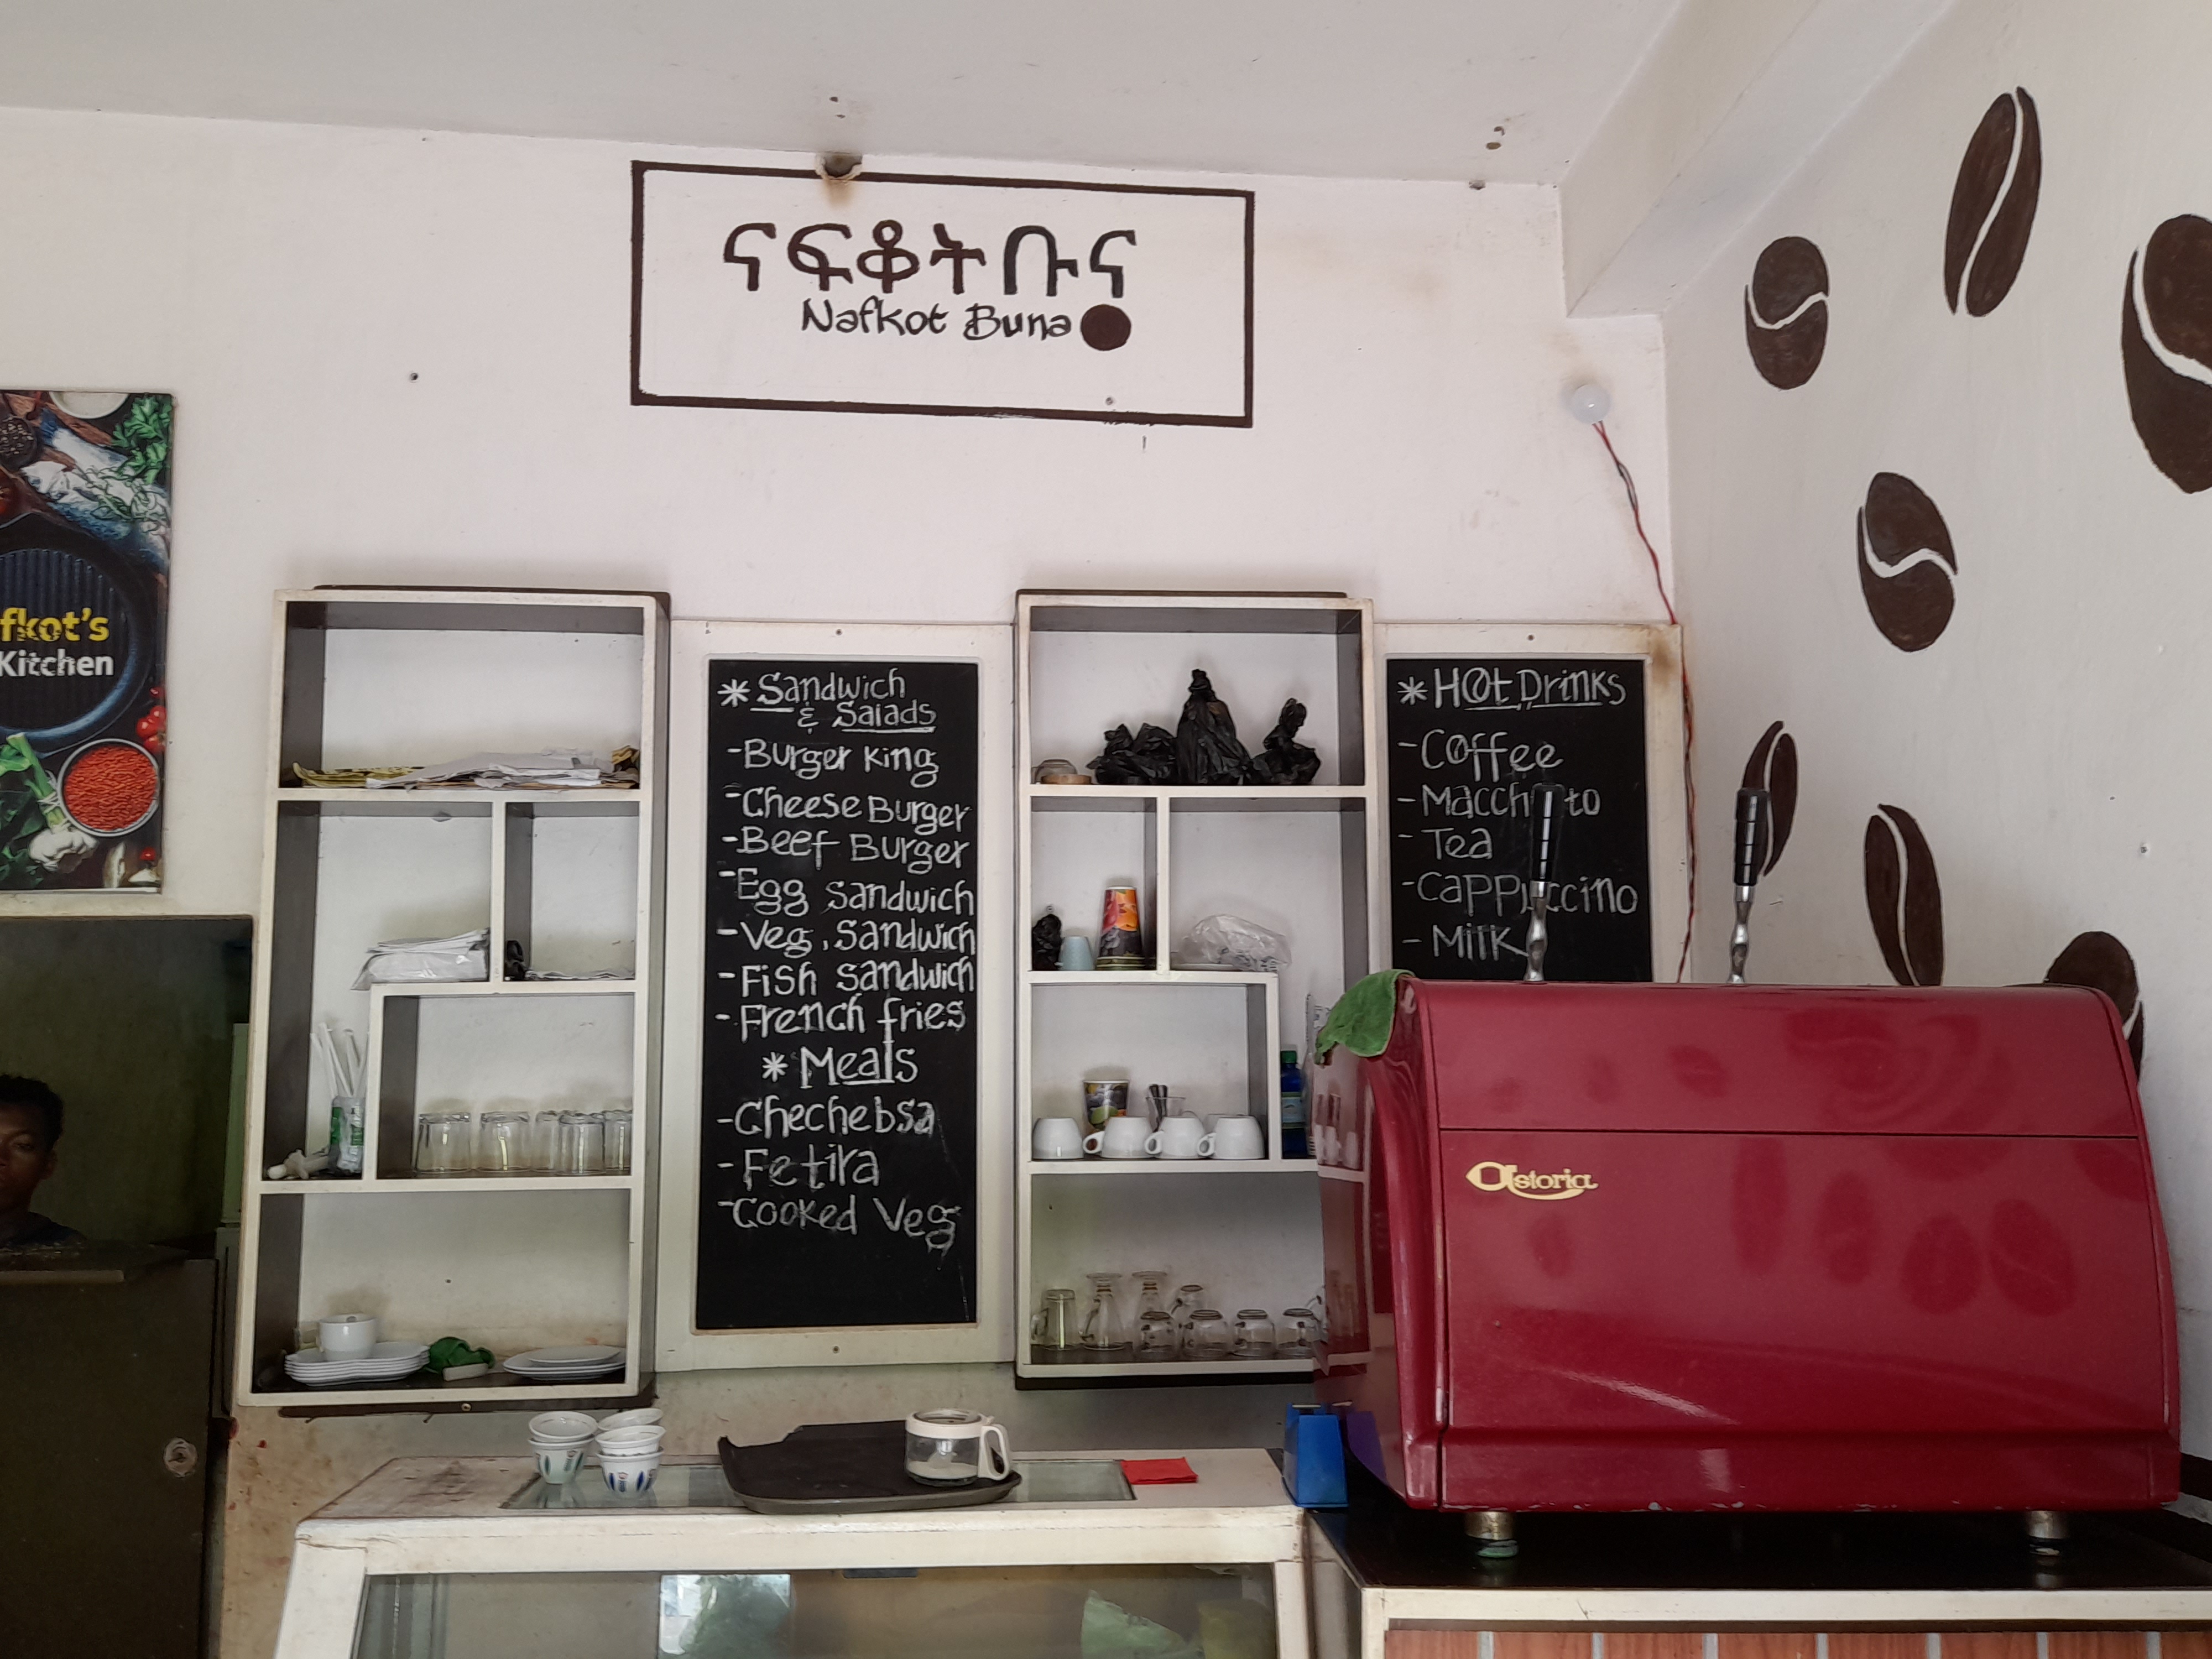 ናፍቆት ቡና
Nafkot Buna
fkot's
Kitchen
* Sandwich
& Salads
- Burger King
- Cheese Burger
- Beef Burger
- Egg Sandwich
- Veg. Sandwich
- Fish Sandwich
- French fries
* Meals
- Chechebsa
- Fetira
- Cooked Veg
* Hot Drinks
- Coffee
- Macchiato
- Tea
- Cappuccino
- Milk
Astoria